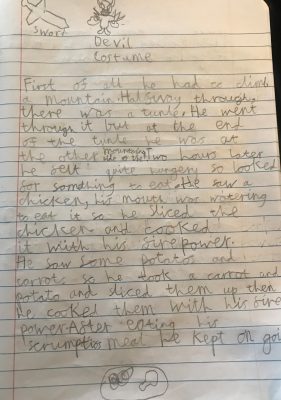 Swort
Devil
Costume
First of all he had to climb
a mountain. Halfway through
there was a tunle. He went
through it but at the end
of the tunle he was at
the other mountain
side of the two hours later
he felt quite hungry so looked
for something to eat. He saw a
chicken, his mouth was watering
to eat it so he sliced the
chicken and cooked
it with his firepower.
He saw some potatos and
carrots so he took a carrot and
potato and sliced them up then
he cooked them with his fire
power. After eating his
scrumptis meal he kept on goi